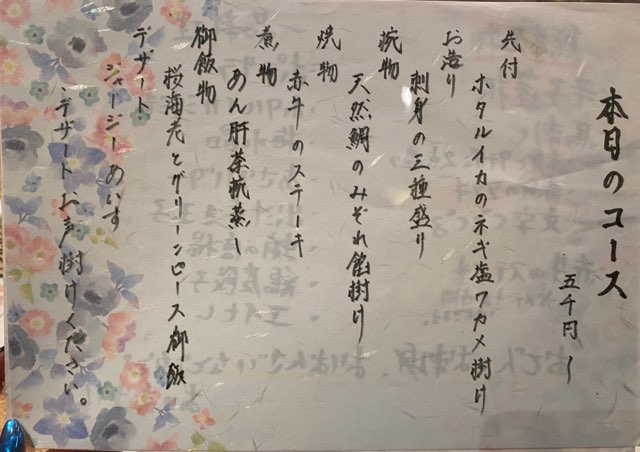 本日のコース
五千円〜
先付
ホタルイカのネギ塩ワカメ掛け
お造り
刺身の三種盛り
椀物
天然鯛のみぞれ餡掛け
焼物
赤牛のステーキ
煮物
あん肝茶碗蒸し
御飯物
桜海老とグリーンピース御飯
デザート
ジャージーあいす
・デザートお声掛けください。